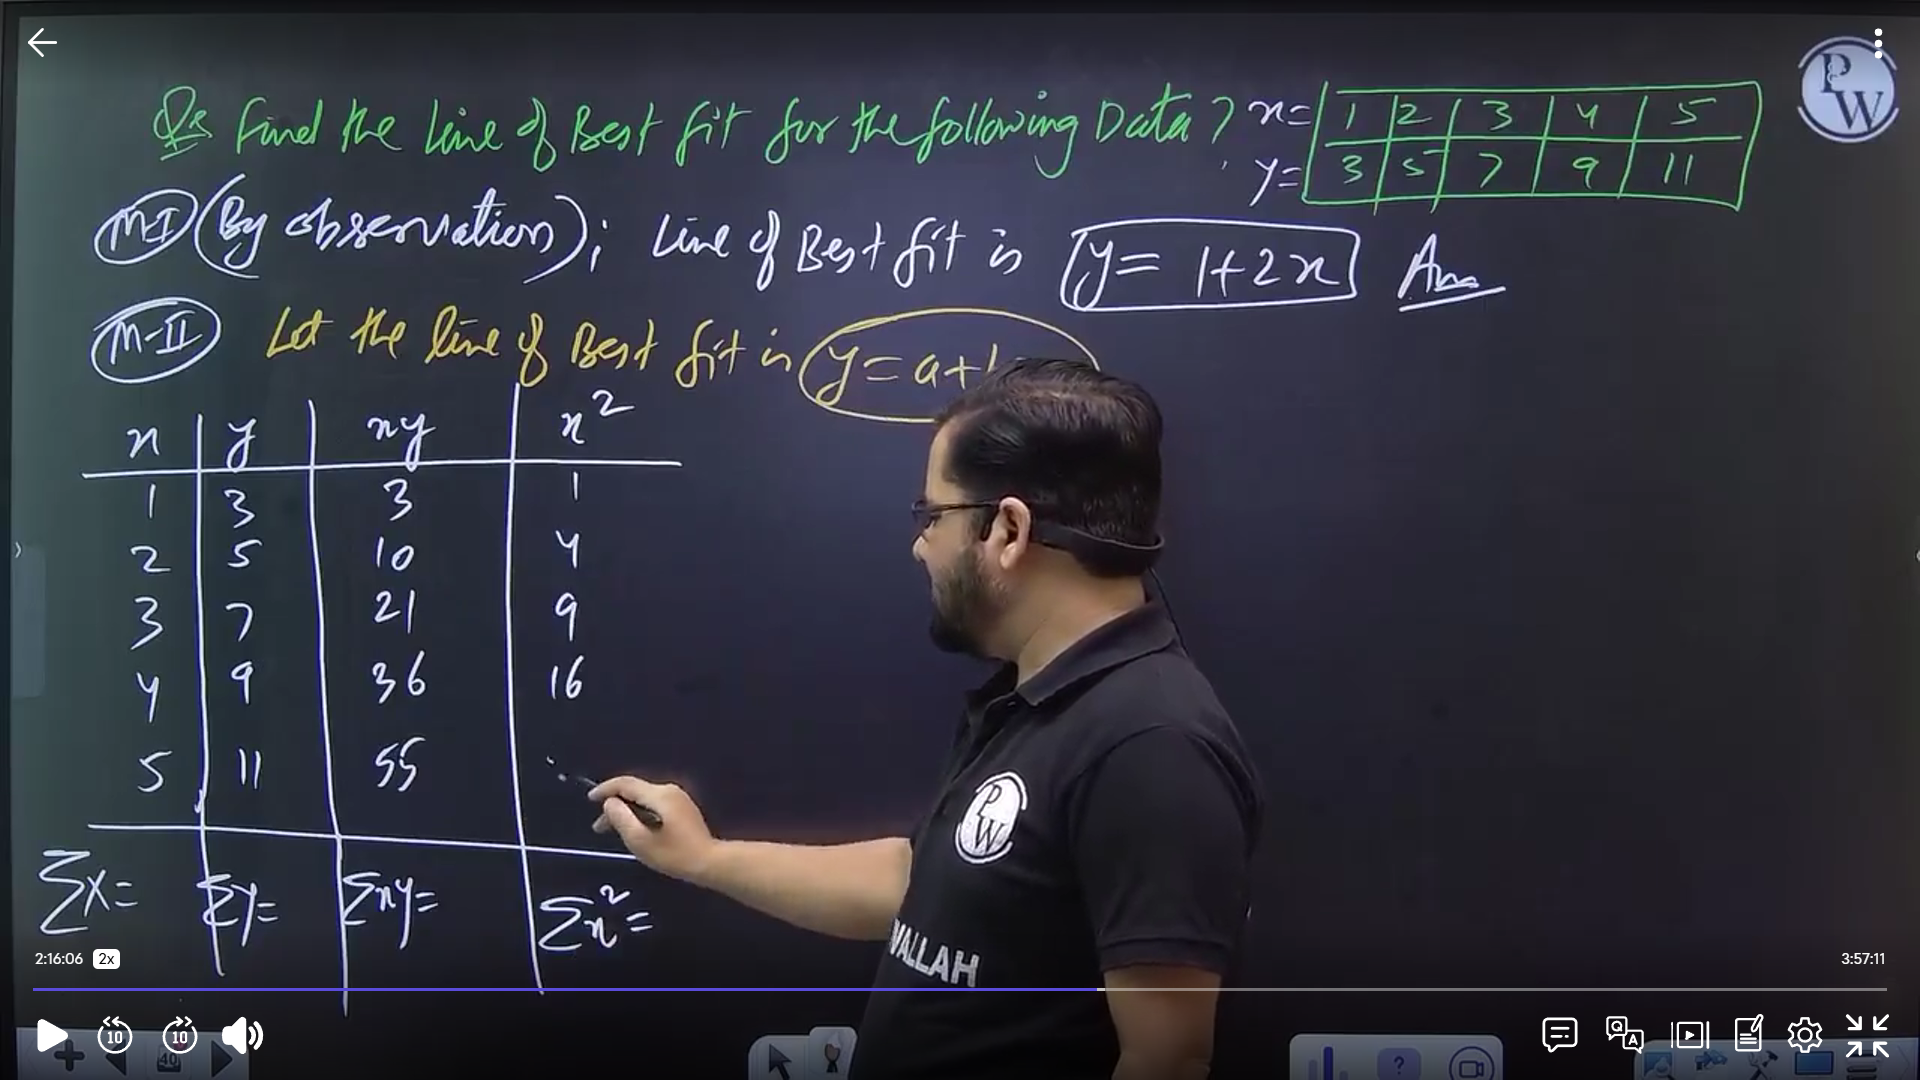 Qs Find the Line of Best fit for the following Data ? x= 1 2 3 4 5
y= 3 5 7 9 11
PW
M-I (By observation); Line of Best fit is y = 1+2x Ans
M-II Let the line of Best fit is y = a+
x y xy x²
1 3 3 1
2 5 10 4
3 7 21 9
4 9 36 16
5 11 55
Σx= Σy= Σxy= Σx²=
PW
WALLAH
2:16:06 2x 3:57:11
10 10
40